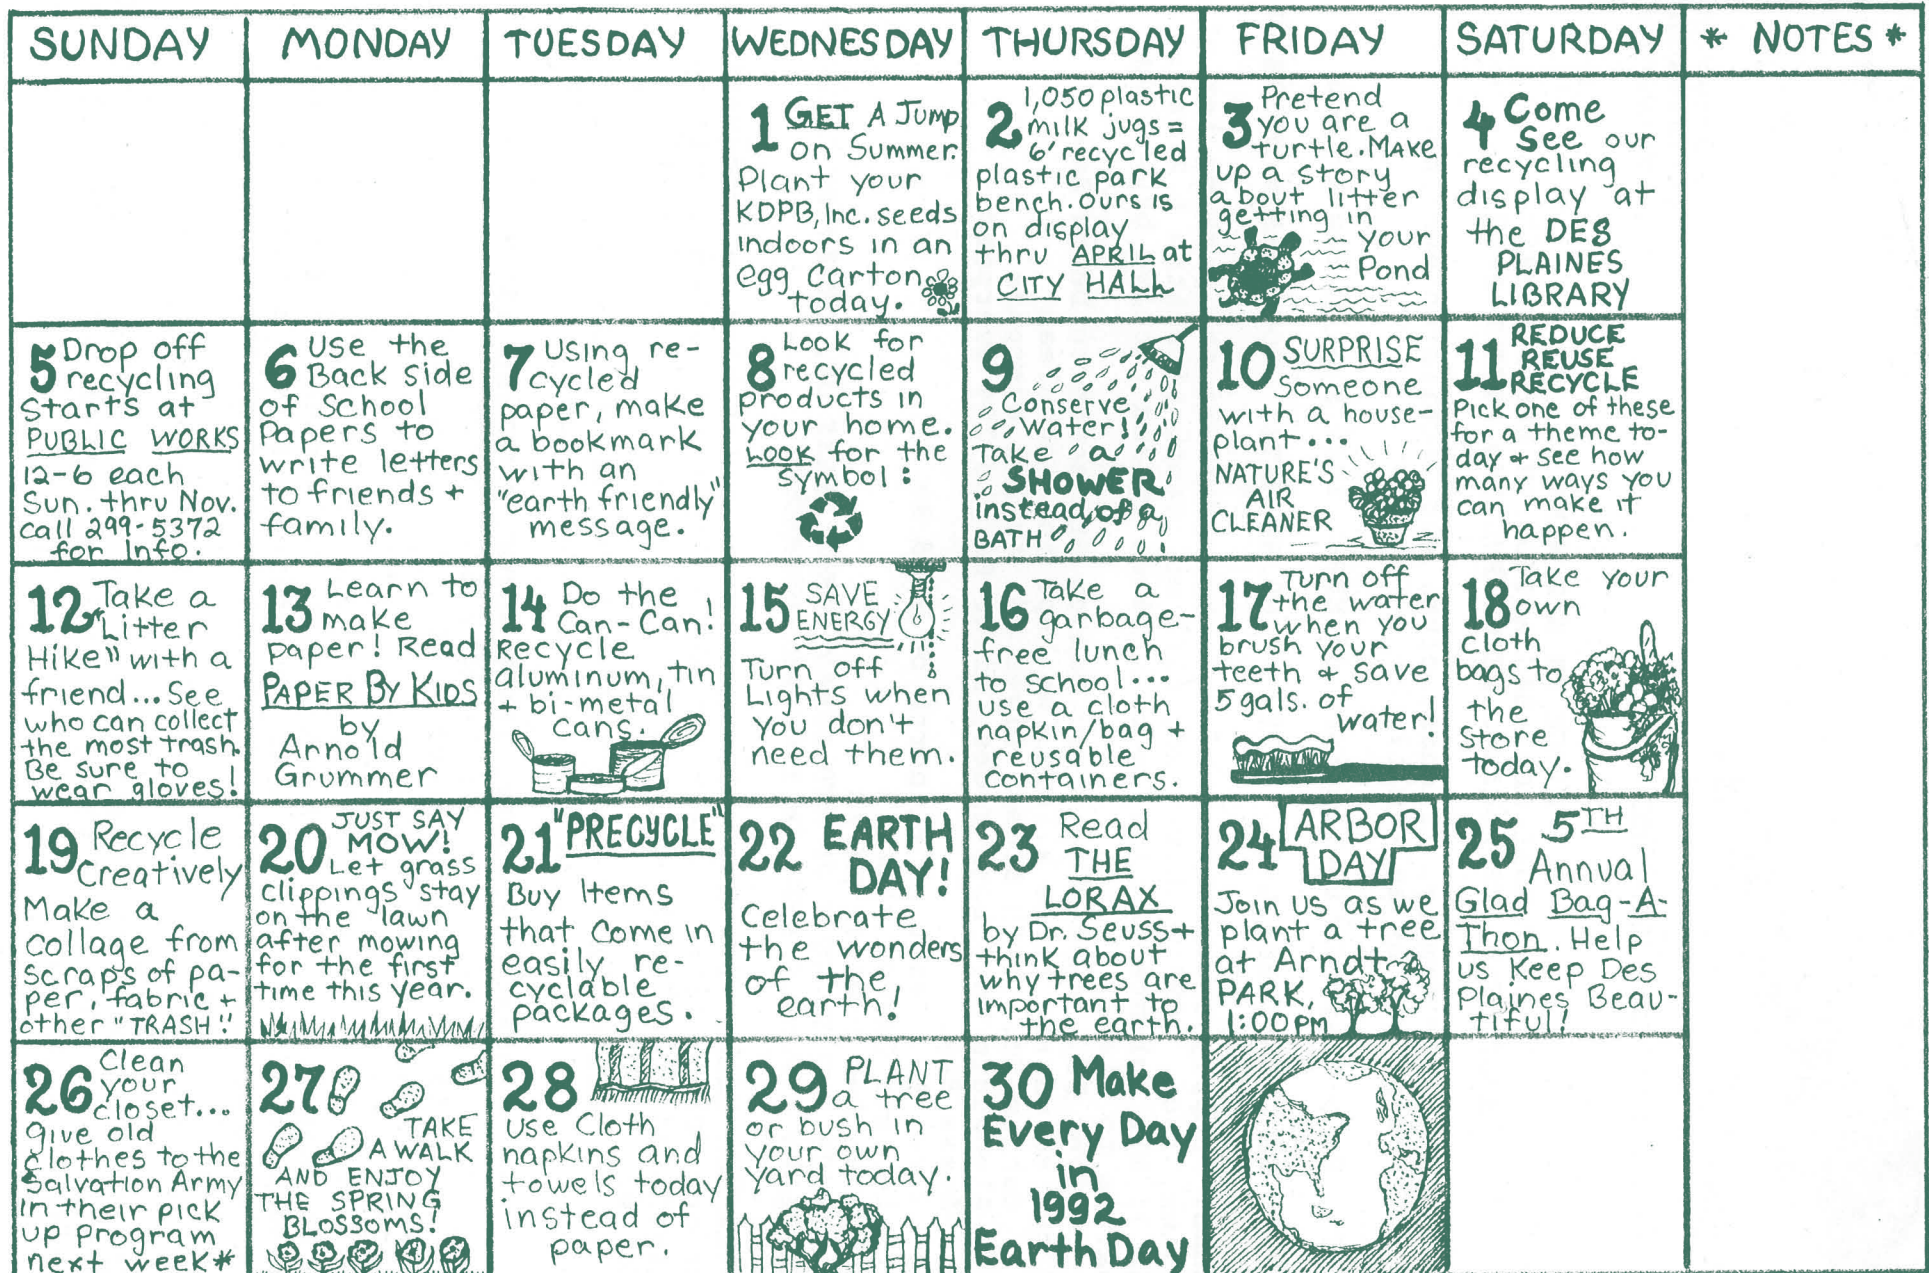 SUNDAY
MONDAY
TUESDAY
WEDNESDAY
THURSDAY
FRIDAY
SATURDAY
* NOTES *
1 GET A Jump
on Summer.
Plant your
KDPB, Inc. seeds
indoors in an
egg carton
today.
2 1,050 plastic
milk jugs =
6' recycled
plastic park
bench. Ours is
on display
thru APRIL at
CITY HALL
3 Pretend
you are a
turtle. Make
up a story
about litter
getting in
your
Pond
4 Come
See our
recycling
display at
the DES
PLAINES
LIBRARY
5 Drop off
recycling
Starts at
PUBLIC WORKS
12-6 each
Sun. thru Nov.
call 299-5372
for Info.
6 Use the
Back side
of School
Papers to
write letters
to friends +
family.
7 Using re-
cycled
paper, make
a bookmark
with an
"earth friendly"
message.
8 Look for
recycled
products in
your home.
LOOK for the
symbol:
9
Conserve
Water!
Take a
SHOWER
instead of a
BATH
10 SURPRISE
Someone
with a house-
plant...
NATURE'S
AIR
CLEANER
11 REDUCE
REUSE
RECYCLE
Pick one of these
for a theme to-
day & see how
many ways you
can make it
happen.
12 Take a
"Litter
Hike" with a
friend... See
who can collect
the most trash.
Be sure to
wear gloves!
13 Learn to
make
paper! Read
PAPER BY KIDS
by
Arnold
Grummer
14 Do the
Can-Can!
Recycle
aluminum, tin
+ bi-metal
cans.
15 SAVE
ENERGY
Turn off
Lights when
you don't
need them.
16 Take a
garbage-
free lunch
to school...
use a cloth
napkin/bag +
reusable
containers.
17 Turn off
the water
when you
brush your
teeth & save
5 gals. of
water!
18 Take your
own
cloth
bags to
the
store
today.
19 Recycle
Creatively
Make a
collage from
scraps of pa-
per, fabric +
other "TRASH".
20 JUST SAY
MOW!
Let grass
clippings stay
on the lawn
after mowing
for the first
time this year.
21 "PRECYCLE"
Buy Items
that come in
easily re-
cyclable
packages.
22 EARTH
DAY!
Celebrate
the wonders
of the
earth!
23 Read
THE
LORAX
by Dr. Seuss +
think about
why trees are
important to
the earth.
24 ARBOR
DAY
Join us as we
plant a tree
at Arndt
PARK,
1:00 PM
25 5TH
Annual
Glad Bag-A-
Thon. Help
us Keep Des
Plaines Beau-
tiful!
26 Clean
your
closet...
Give old
clothes to the
Salvation Army
in their pick
up program
next week*
27
TAKE
A WALK
AND ENJOY
THE SPRING
BLOSSOMS!
28
Use Cloth
napkins and
towels today
instead of
paper.
29 PLANT
a tree
or bush in
your own
yard today.
30 Make
Every Day
in
1992
Earth Day